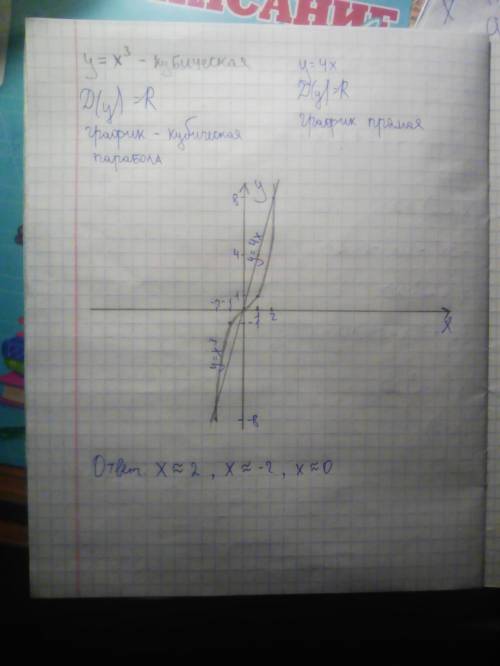 ПИСАНИЕ
y = x³ - кубическая
D(y) = R
график - кубическая
парабола
y = 4x
D(y) = R
график прямая
8
y
4
y = 4x
-2 -1 1
1 2
-1
x
y = x³
-8
Ответ x ≈ 2 , x ≈ -2 , x ≈ 0